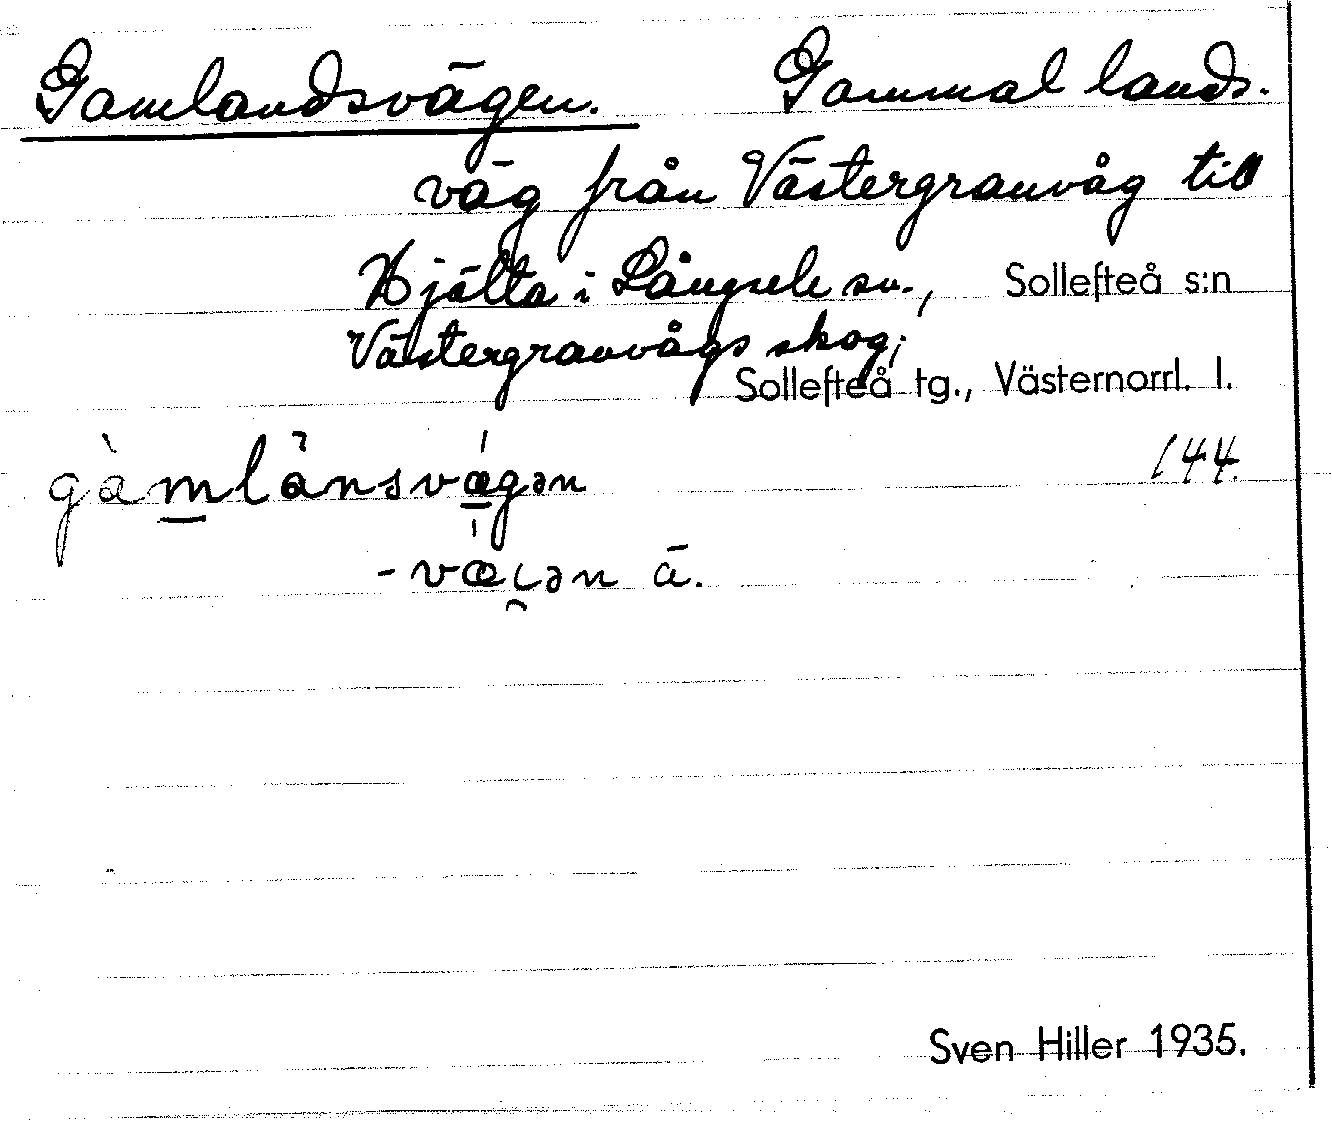 Gamlandsvägen. Gammal lands-
väg från Västergranvåg till
Hjälta i Långsele sn., Sollefteå s:n
Västergranvågs skog;
Sollefteå tg., Västernorrl. l.
gàmlånsvægən 144.
-væɩən ä.
Sven Hiller 1935.